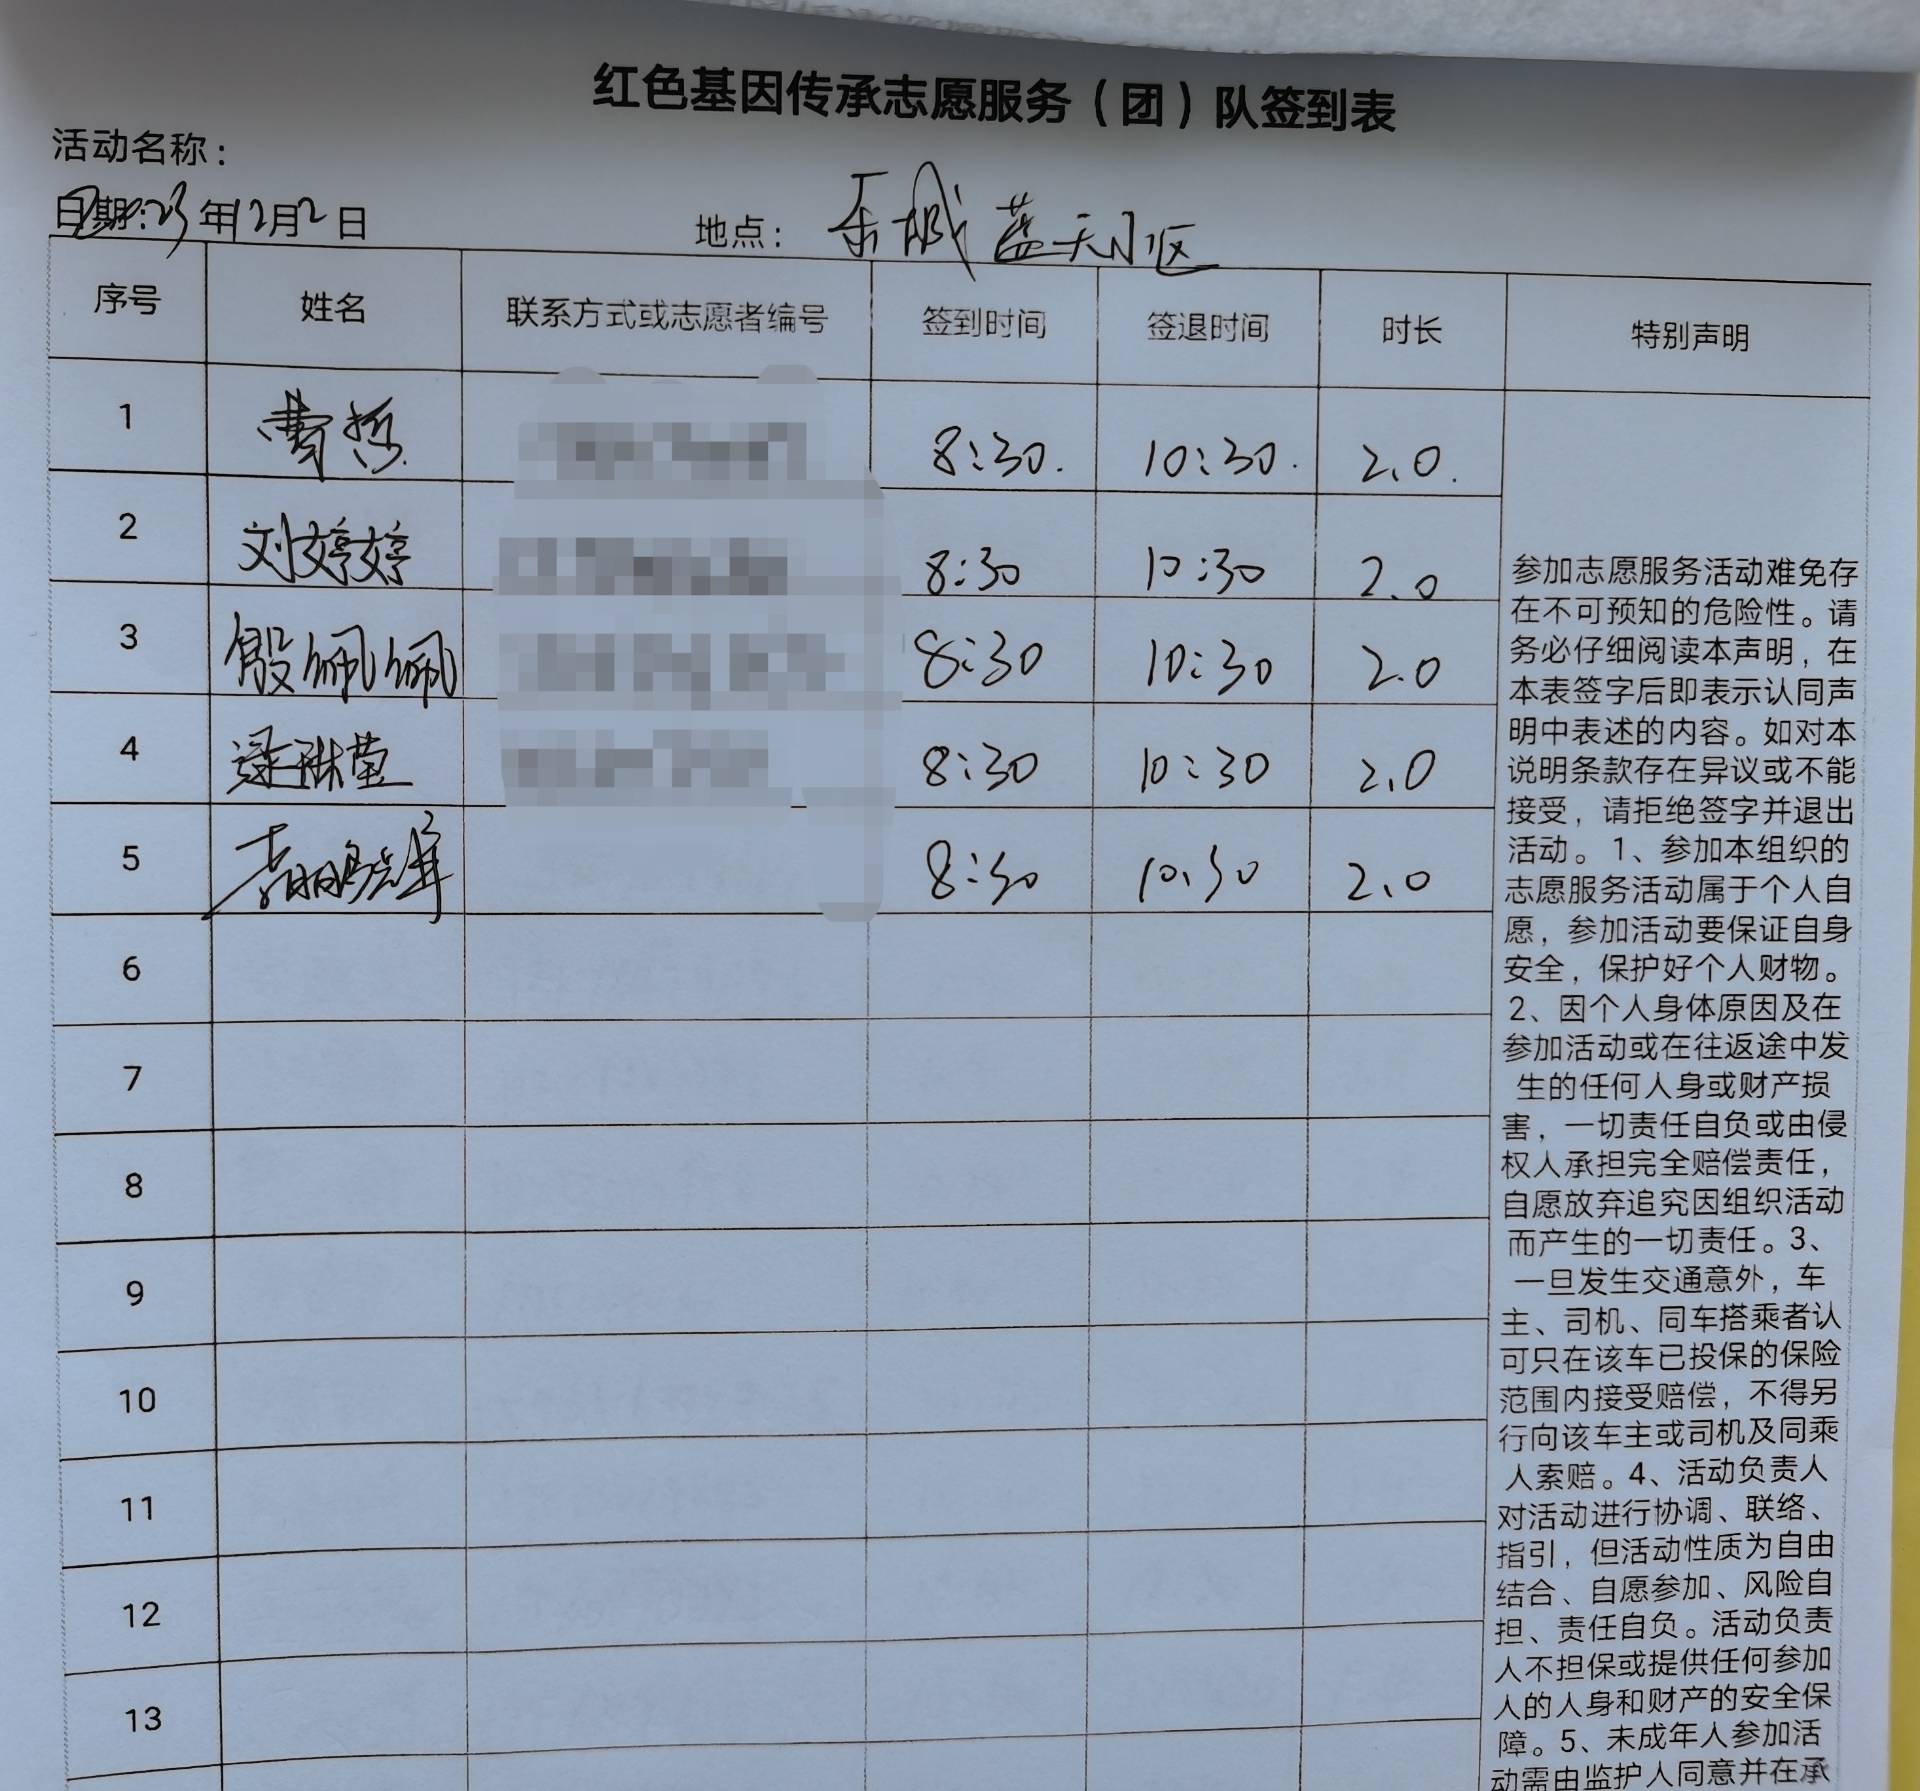 红色基因传承志愿服务（团）队签到表
活动名称：
日期：23年12月2日 地点：东城蓝天小区
序号 姓名 联系方式或志愿者编号 签到时间 签退时间 时长 特别声明
1 曹哲 8:30. 10:30. 2.0.
2 刘婷婷 8:30 10:30 2.0
3 殷佩佩 8:30 10:30 2.0
4 梁琳莹 8:30 10:30 2.0
5 8:30 10:30 2.0
6
7
8
9
10
11
12
13
参加志愿服务活动难免存
在不可预知的危险性。请
务必仔细阅读本声明，在
本表签字后即表示认同声
明中表述的内容。如对本
说明条款存在异议或不能
接受，请拒绝签字并退出
活动。1、参加本组织的
志愿服务活动属于个人自
愿，参加活动要保证自身
安全，保护好个人财物。
2、因个人身体原因及在
参加活动或在往返途中发
生的任何人身或财产损
害，一切责任自负或由侵
权人承担完全赔偿责任，
自愿放弃追究因组织活动
而产生的一切责任。3、
一旦发生交通意外，车
主、司机、同车搭乘者认
可只在该车已投保的保险
范围内接受赔偿，不得另
行向该车主或司机及同乘
人索赔。4、活动负责人
对活动进行协调、联络、
指引，但活动性质为自由
结合、自愿参加、风险自
担、责任自负。活动负责
人不担保或提供任何参加
人的人身和财产的安全保
障。5、未成年人参加活
动需由监护人同意并在承